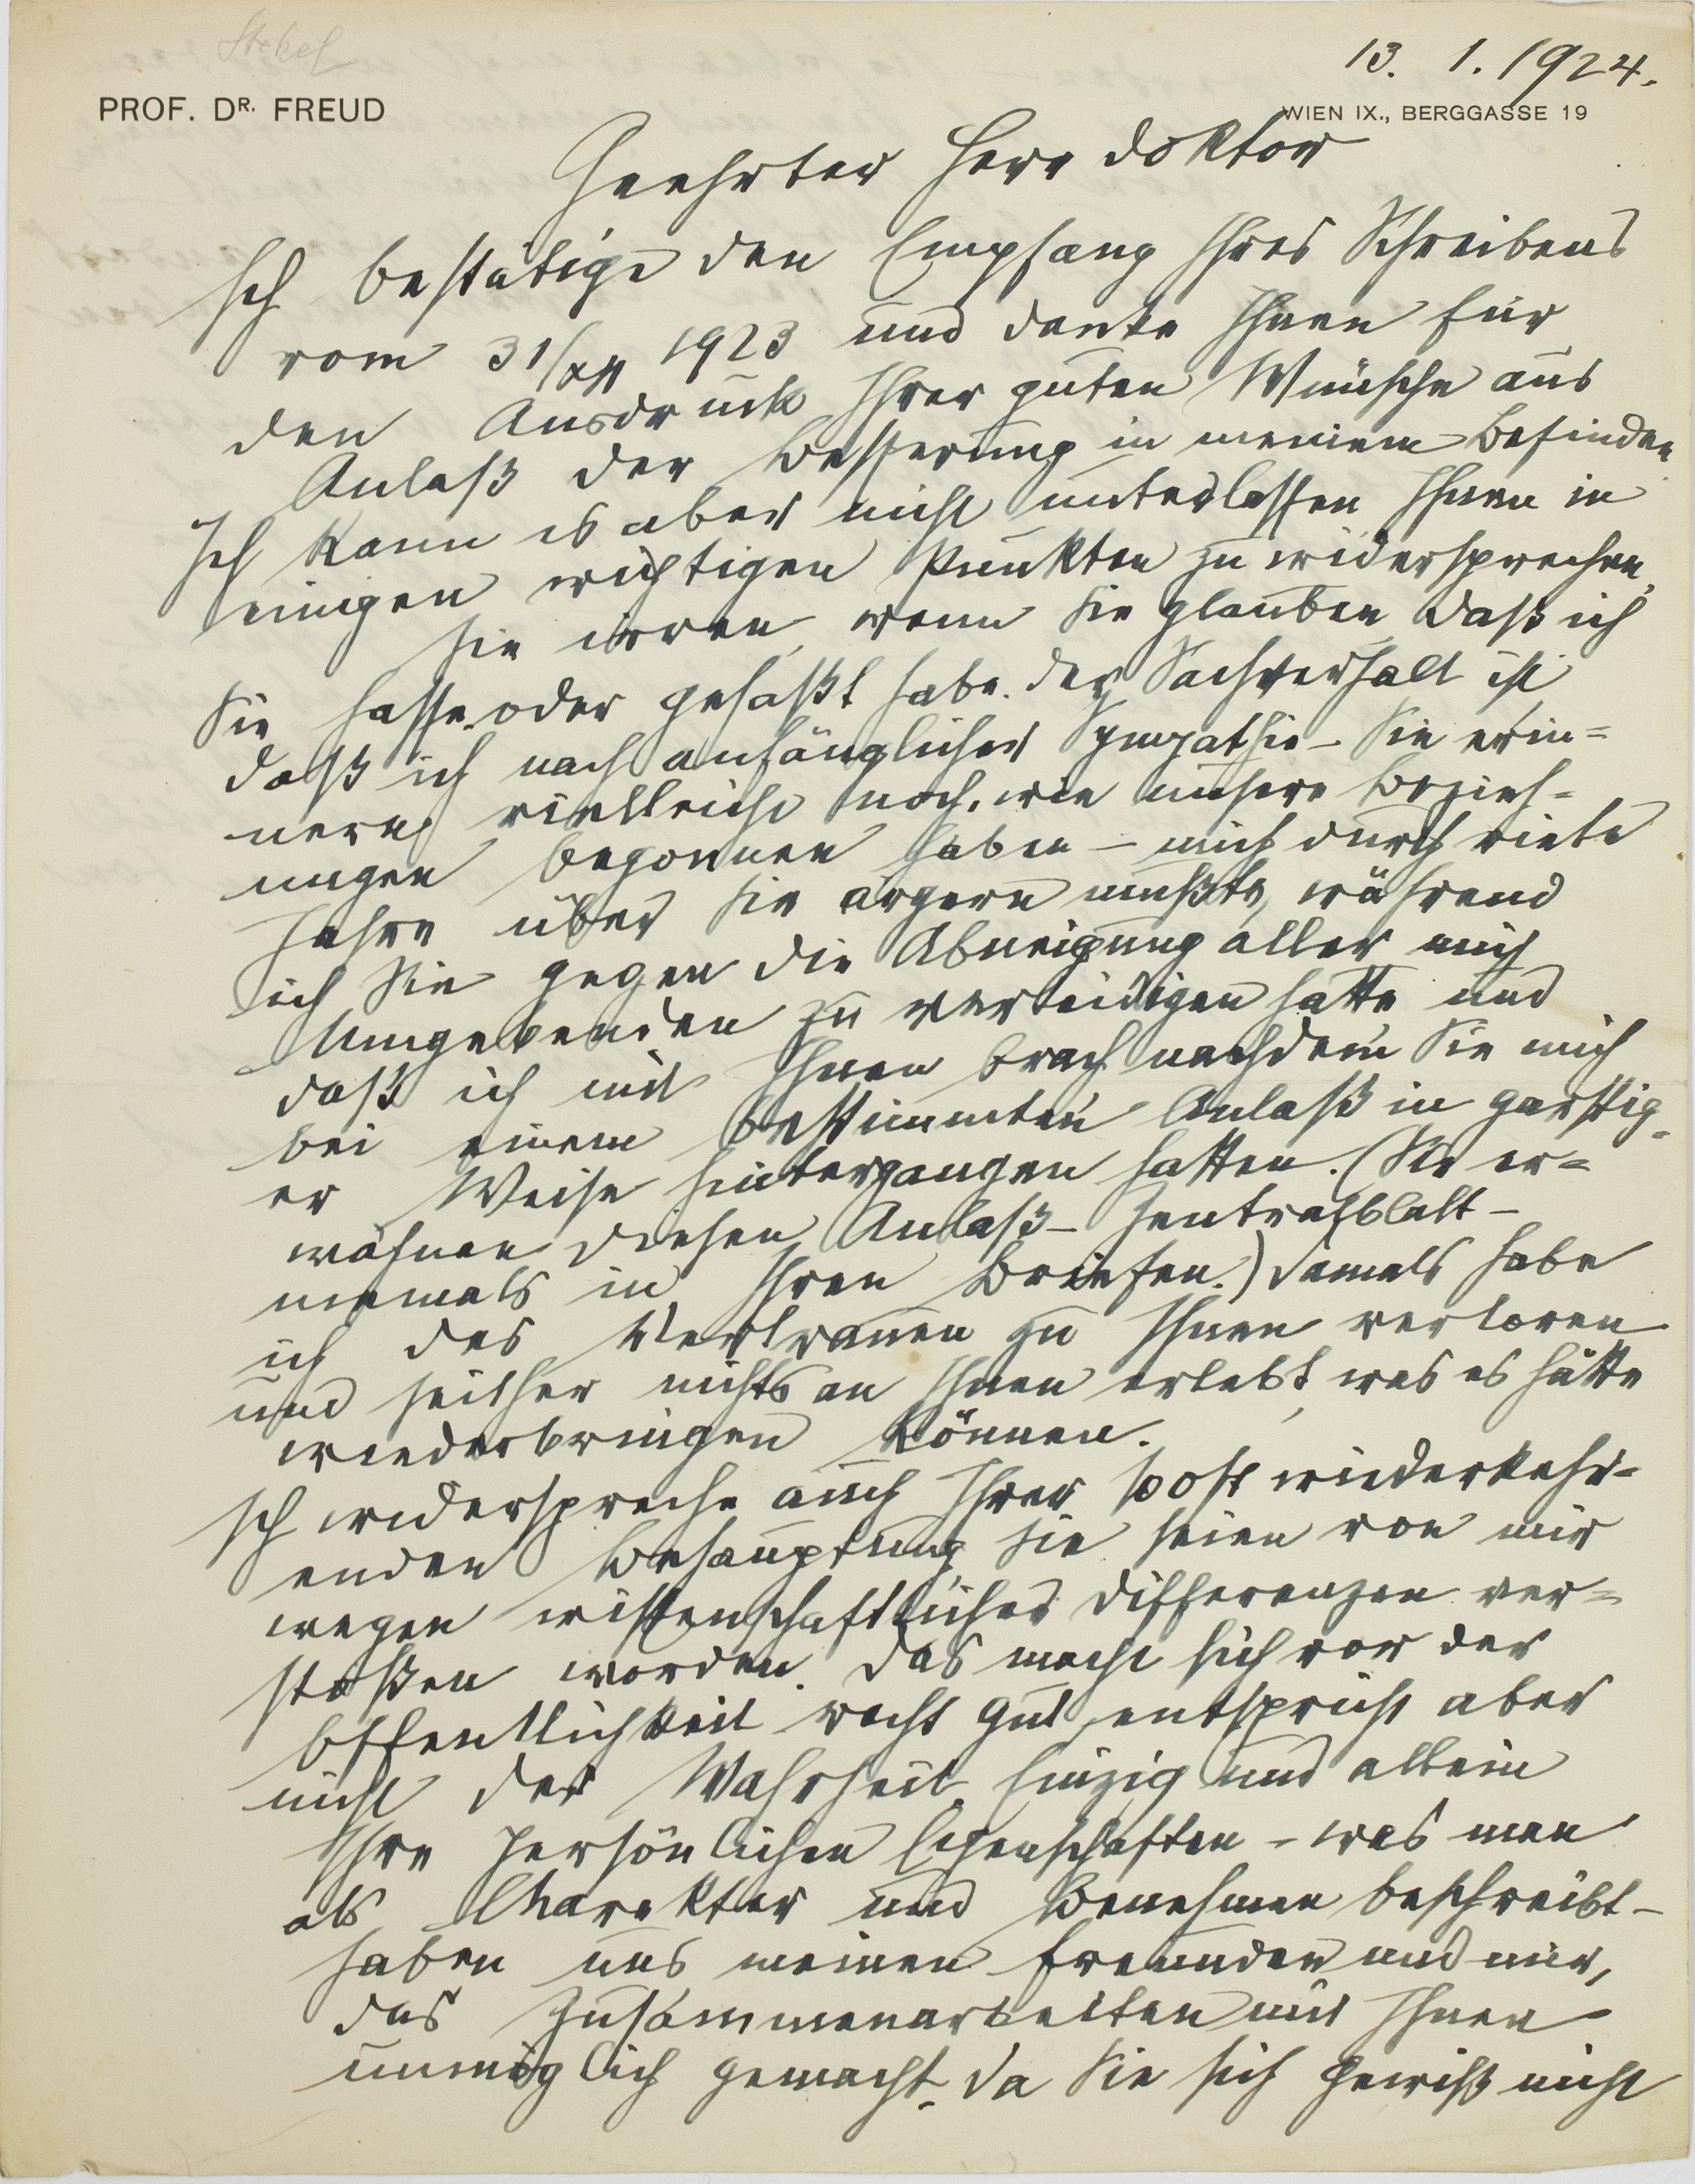 Stekel
13. 1. 1924.
PROF. DR. FREUD
WIEN IX., BERGGASSE 19
Geehrter Herr Doktor
Ich bestätige den Empfang Ihres Schreibens
vom 31/XII 1923 und danke Ihnen für
den Ausdruck Ihrer guten Wünsche aus
Anlaß der Besserung in meinem Befinden
Ich kann es aber nicht unterlassen Ihnen in
einigen wichtigen Punkten zu widersprechen,
Sie irren, wenn Sie glauben, daß ich
Sie hasse oder gehaßt habe. Der Sachverhalt ist
daß ich nach anfänglicher Sympathie – Sie erin=
nern vielleicht noch, wie unsere Bezieh=
ungen begonnen haben – mich durch viele
Jahre über Sie ärgern mußte, während
ich Sie gegen die Abneigung aller mich
Umgebenden zu verteidigen hatte und
daß ich mit Ihnen brach nachdem Sie mich
bei einem bestimmten Anlaß in garstig=
er Weise hintergangen hatten. (Sie er=
wähnen diesen Anlaß – Zentralblatt –
niemals in Ihren Briefen.) Damals habe
ich das Vertrauen zu Ihnen verloren
und seither nichts an Ihnen erlebt, was es hätte
wiederbringen können.
Ich widerspreche auch Ihrer so oft wiederkehr=
enden Behauptung Sie seien von mir
wegen wissenschaftlicher Differenzen ver=
stoßen worden. Das macht sich vor der
Öffentlichkeit recht gut, entspricht aber
nicht der Wahrheit. Einzig und allein
Ihre persönlichen Eigenschaften – was man
als Charakter und Benehmen beschreibt –
haben uns meinen Freunden und mir,
das Zusammenarbeiten mit Ihnen
unmöglich gemacht. Da Sie sich gewiß nicht